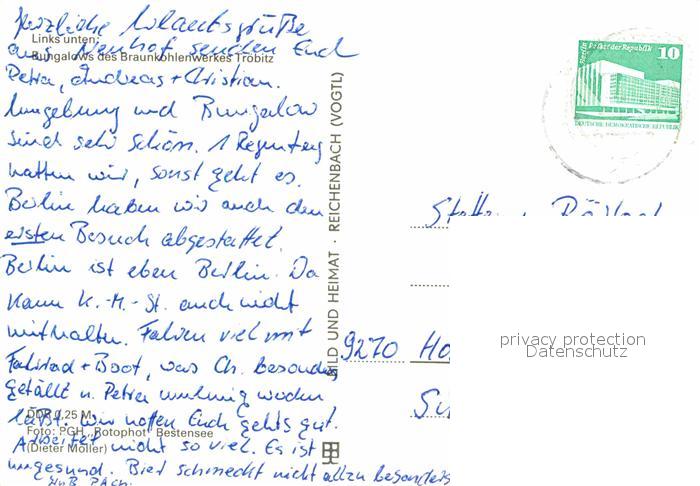 Herzliche Urlaubsgrüße
Links unten:
aus Neuhof senden Euch
Bungalows des Braunkohlenwerkes Tröbitz
Petra, Andreas + Christian.
Umgebung und Bungalow
sind sehr schön. 1 Regentag
hatten wir, sonst geht es.
Berlin haben wir auch den
ersten Besuch abgestattet.
Berlin ist eben Berlin. Da
kann K.-M.-St. auch nicht
mithalten. Fahren viel mit
Fahrrad + Boot, was Ch. besonders
gefällt u. Petra
läßt. Wir hoffen Euch gehts gut.
DDR 0,25 M
Foto: PGH „Rotophot“ Bestensee
Arbeitet nicht so viel. Es ist
(Dieter Möller)
ungesund. Bier schmeckt nicht allzu besonders
BILD UND HEIMAT · REICHENBACH (VOGTL)
Berlin Palast der Republik
10
DEUTSCHE DEMOKRATISCHE REPUBLIK
9270 Ho
privacy protection
Datenschutz